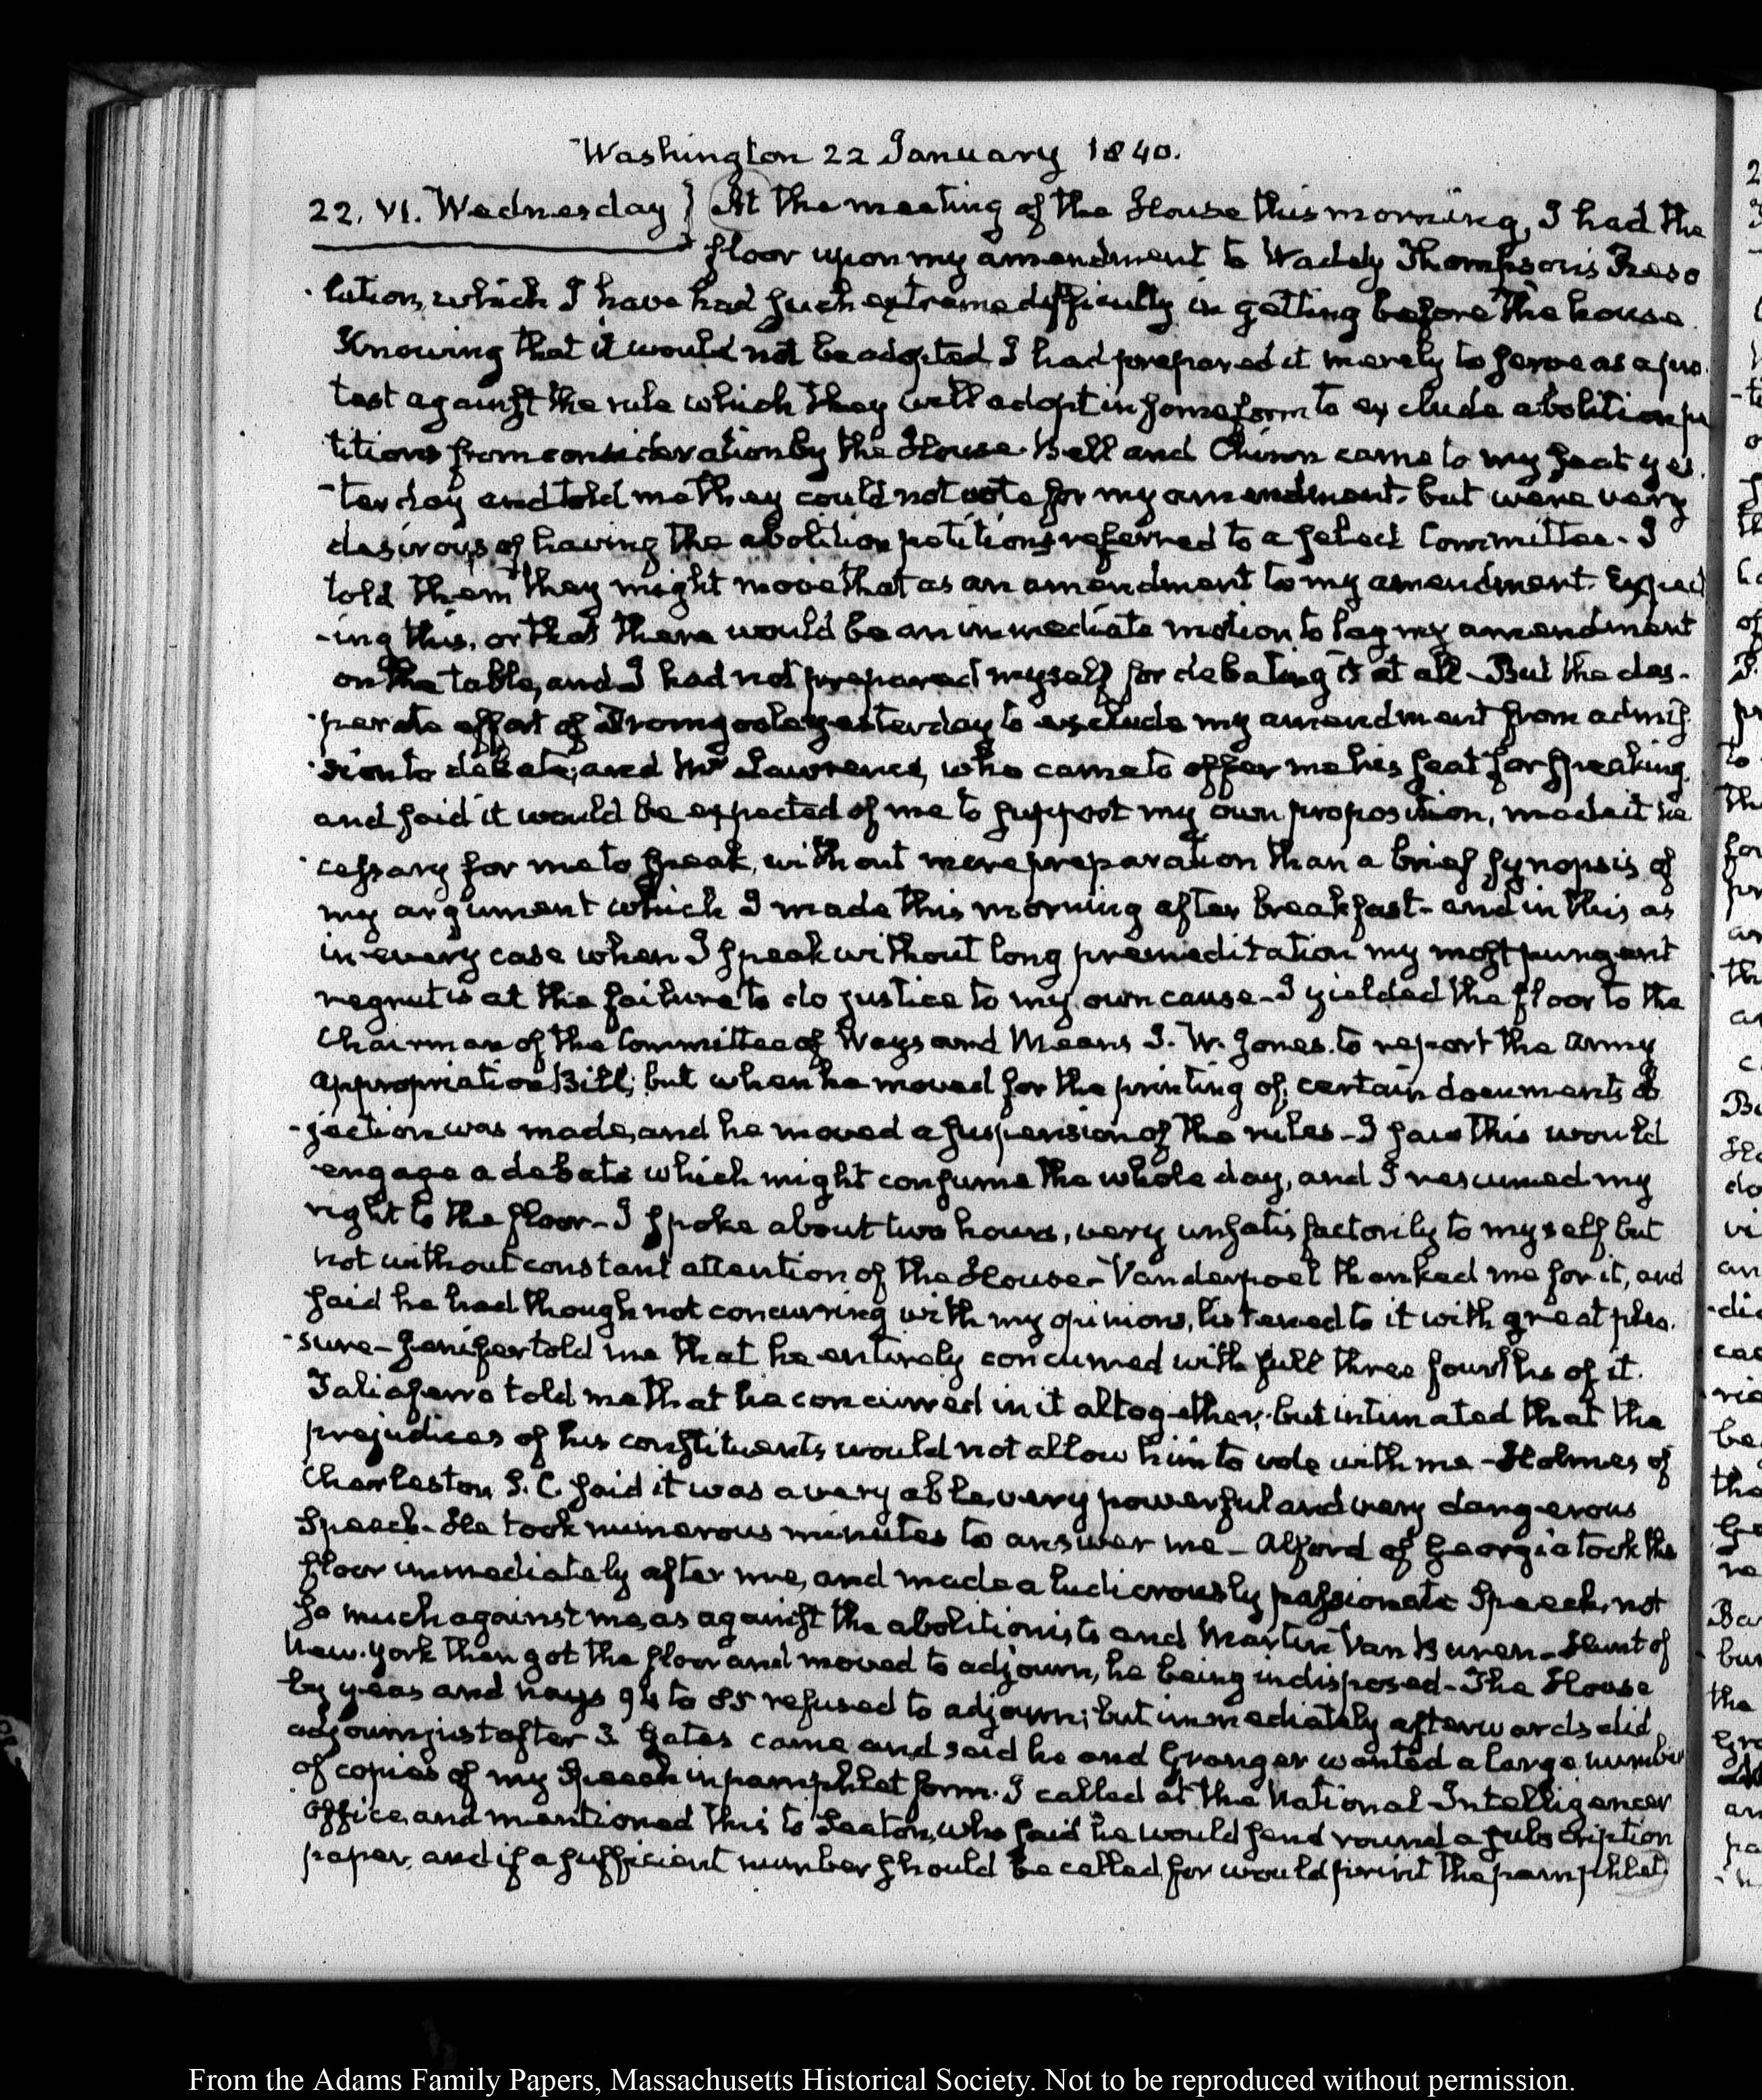 Washington 22 January 1840.
22. VI. Wednesday } At the meeting of the House this morning, I had the
floor upon my amendment to Waddy Thompson's Reso
lution, which I have had such extreme difficulty in getting before the house.
Knowing that it would not be adopted I had prepared it merely to serve as a pro-
test against the rule which they will adopt in some form to exclude abolition pe
titions from consideration by the House. Bell and Chinn came to my seat yes-
-terday and told me they could not vote for my amendment, but were very
desirous of having the abolition petitions referred to a select Committee. I
told them they might move that as an amendment to my amendment. Expect
-ing this, or that there would be an immediate motion to lay my amendment
on the table, and I had not prepared myself for debating it at all - But the des-
-perate effort of Dromgoole yesterday to exclude my amendment from admis
-sion to debate, and Mr Lawrence, who came to offer me his seat for speaking,
and said it would be expected of me to support my own proposition, made it ne
-cessary for me to speak, without more preparation than a brief synopsis of
my argument which I made this morning after breakfast - and in this as
in every case when I speak without long premeditation my most pungent
regret is at the failure to do justice to my own cause - I yielded the floor to the
Chairman of the Committee of Ways and Means J. W. Jones. to report the Army
appropriation Bill; but when he moved for the printing of certain documents ob
-jection was made, and he moved a suspension of the rules - I saw this would
engage a debate which might consume the whole day, and I resumed my
right to the floor - I spoke about two hours, very unsatisfactorily to myself but
not without constant attention of the House - Vanderpoel thanked me for it, and
said he had though not concurring with my opinions, listened to it with great plea-
-sure - Jenifer told me that he entirely concurred with full three fourths of it.
Taliaferro told me that he concurred in it altogether; but intimated that the
prejudices of his constituents would not allow him to vote with me - Holmes of
Charleston, S. C. said it was a very able, very powerful and very dangerous
Speech - He took numerous minutes to answer me - Alford of Georgia took the
floor immediately after me, and made a ludicrously passionate Speech, not
so much against me, as against the abolitionists and Martin Van Buren - Hunt of
New-York then got the floor and moved to adjourn, he being indisposed - The House
by yeas and nays 94 to 85 refused to adjourn; but immediately afterwards did
adjourn just after 3. Gates came and said he and Granger wanted a large number
of copies of my Speech in pamphlet form. I called at the National Intelligencer
Office, and mentioned this to Seaton, who said he would send round a subscription
paper, and if a sufficient number should be called for would print the pamphlet
From the Adams Family Papers, Massachusetts Historical Society. Not to be reproduced without permission.